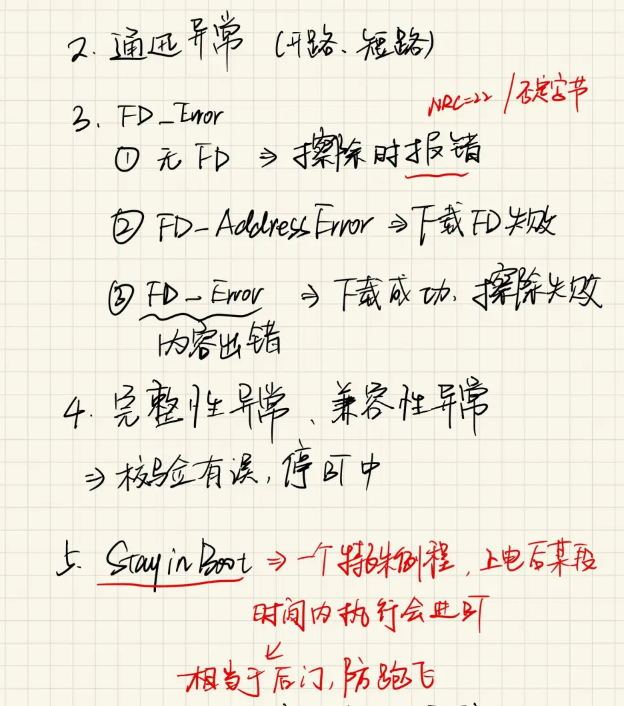 2. 通迅异常 (开路、短路)
NRC=22 / 否定字节
3. FD_Error
① 无FD ⇒ 擦除时报错
② FD-AddressError ⇒ 下载FD失败
③ FD_Error ⇒ 下载成功、擦除失败
内容出错
4. 完整性异常、兼容性异常
⇒ 校验有误,停BT中
5. Stay in Boot ⇒ 一个特殊例程,上电后某段
时间内执行会进BT
相当于后门,防跑飞